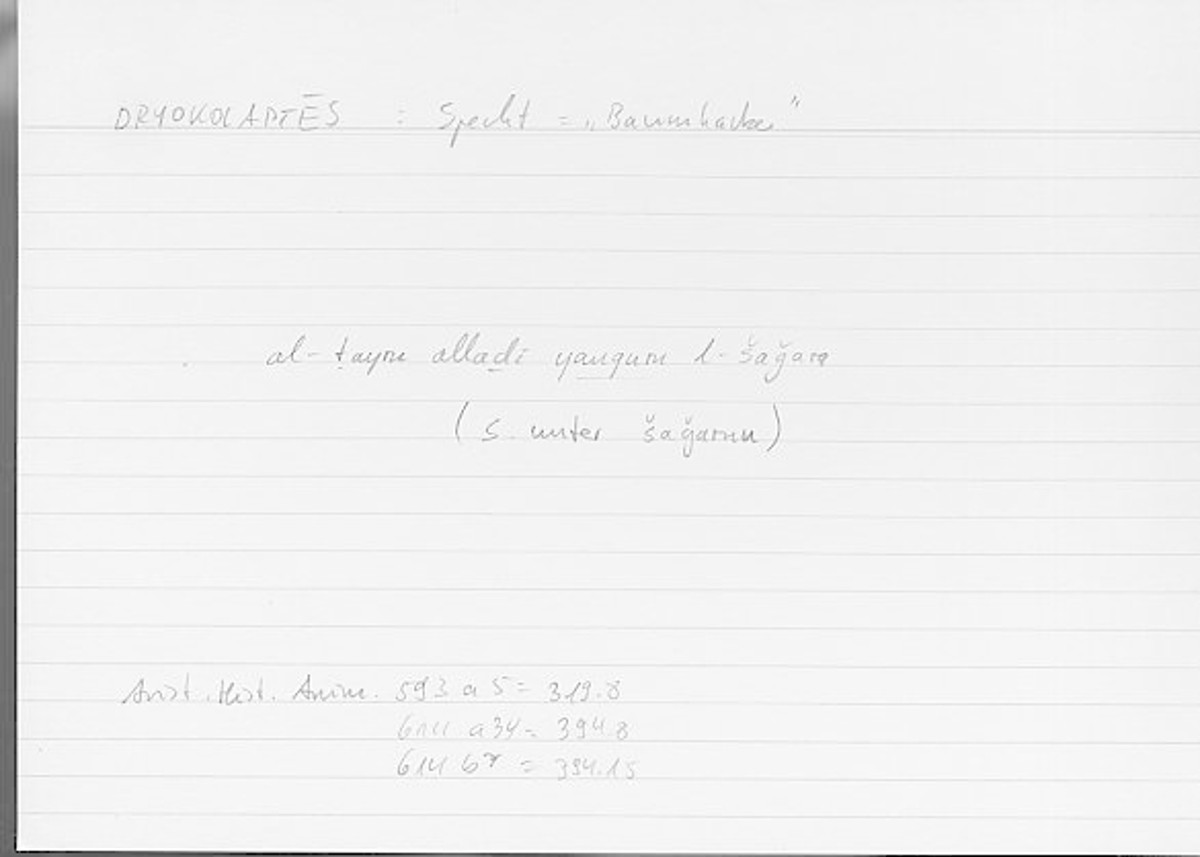 DRYOKOLAPTĒS : Specht = „Baumhacker"
al-ṭayru allaḏī yanquru l-šaǧara
(s. unter šaǧarun)
Arist. Hist. Anim. 593 a 5 = 319.8
614 a34 = 394.8
614 b7 = 394.15